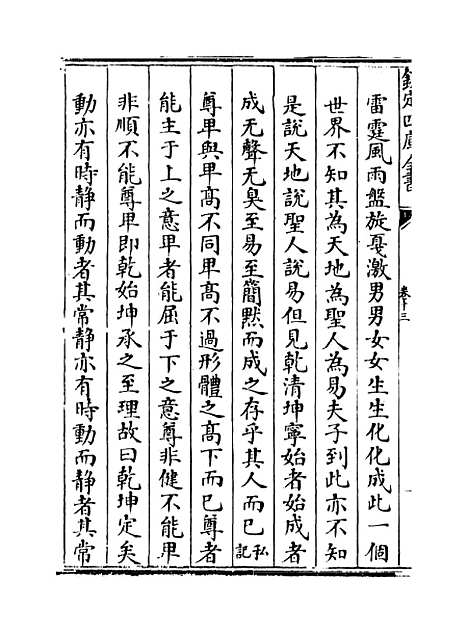 欽定四庫全書
卷十三
雷霆風雨盤旋戛激男男女女生生化化成此一個
世界不知其為天地為聖人為易夫子到此亦不知
是說天地說聖人說易但見乾清坤寧始者始成者
成无聲无臭至易至簡默而成之存乎其人而已私記
尊卑與卑高不同卑高不過形體之高下而已尊者
能主于上之意卑者能屈于下之意尊非健不能卑
非順不能尊卑即乾始坤承之至理故曰乾坤定矣
動亦有時静而動者其常静亦有時動而静者其常